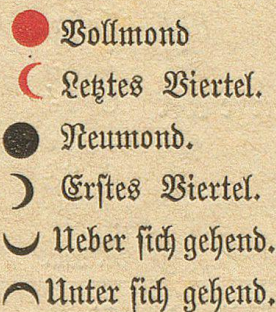 Vollmond
Letztes Viertel.
Neumond.
Erstes Viertel.
Ueber sich gehend.
Unter sich gehend.